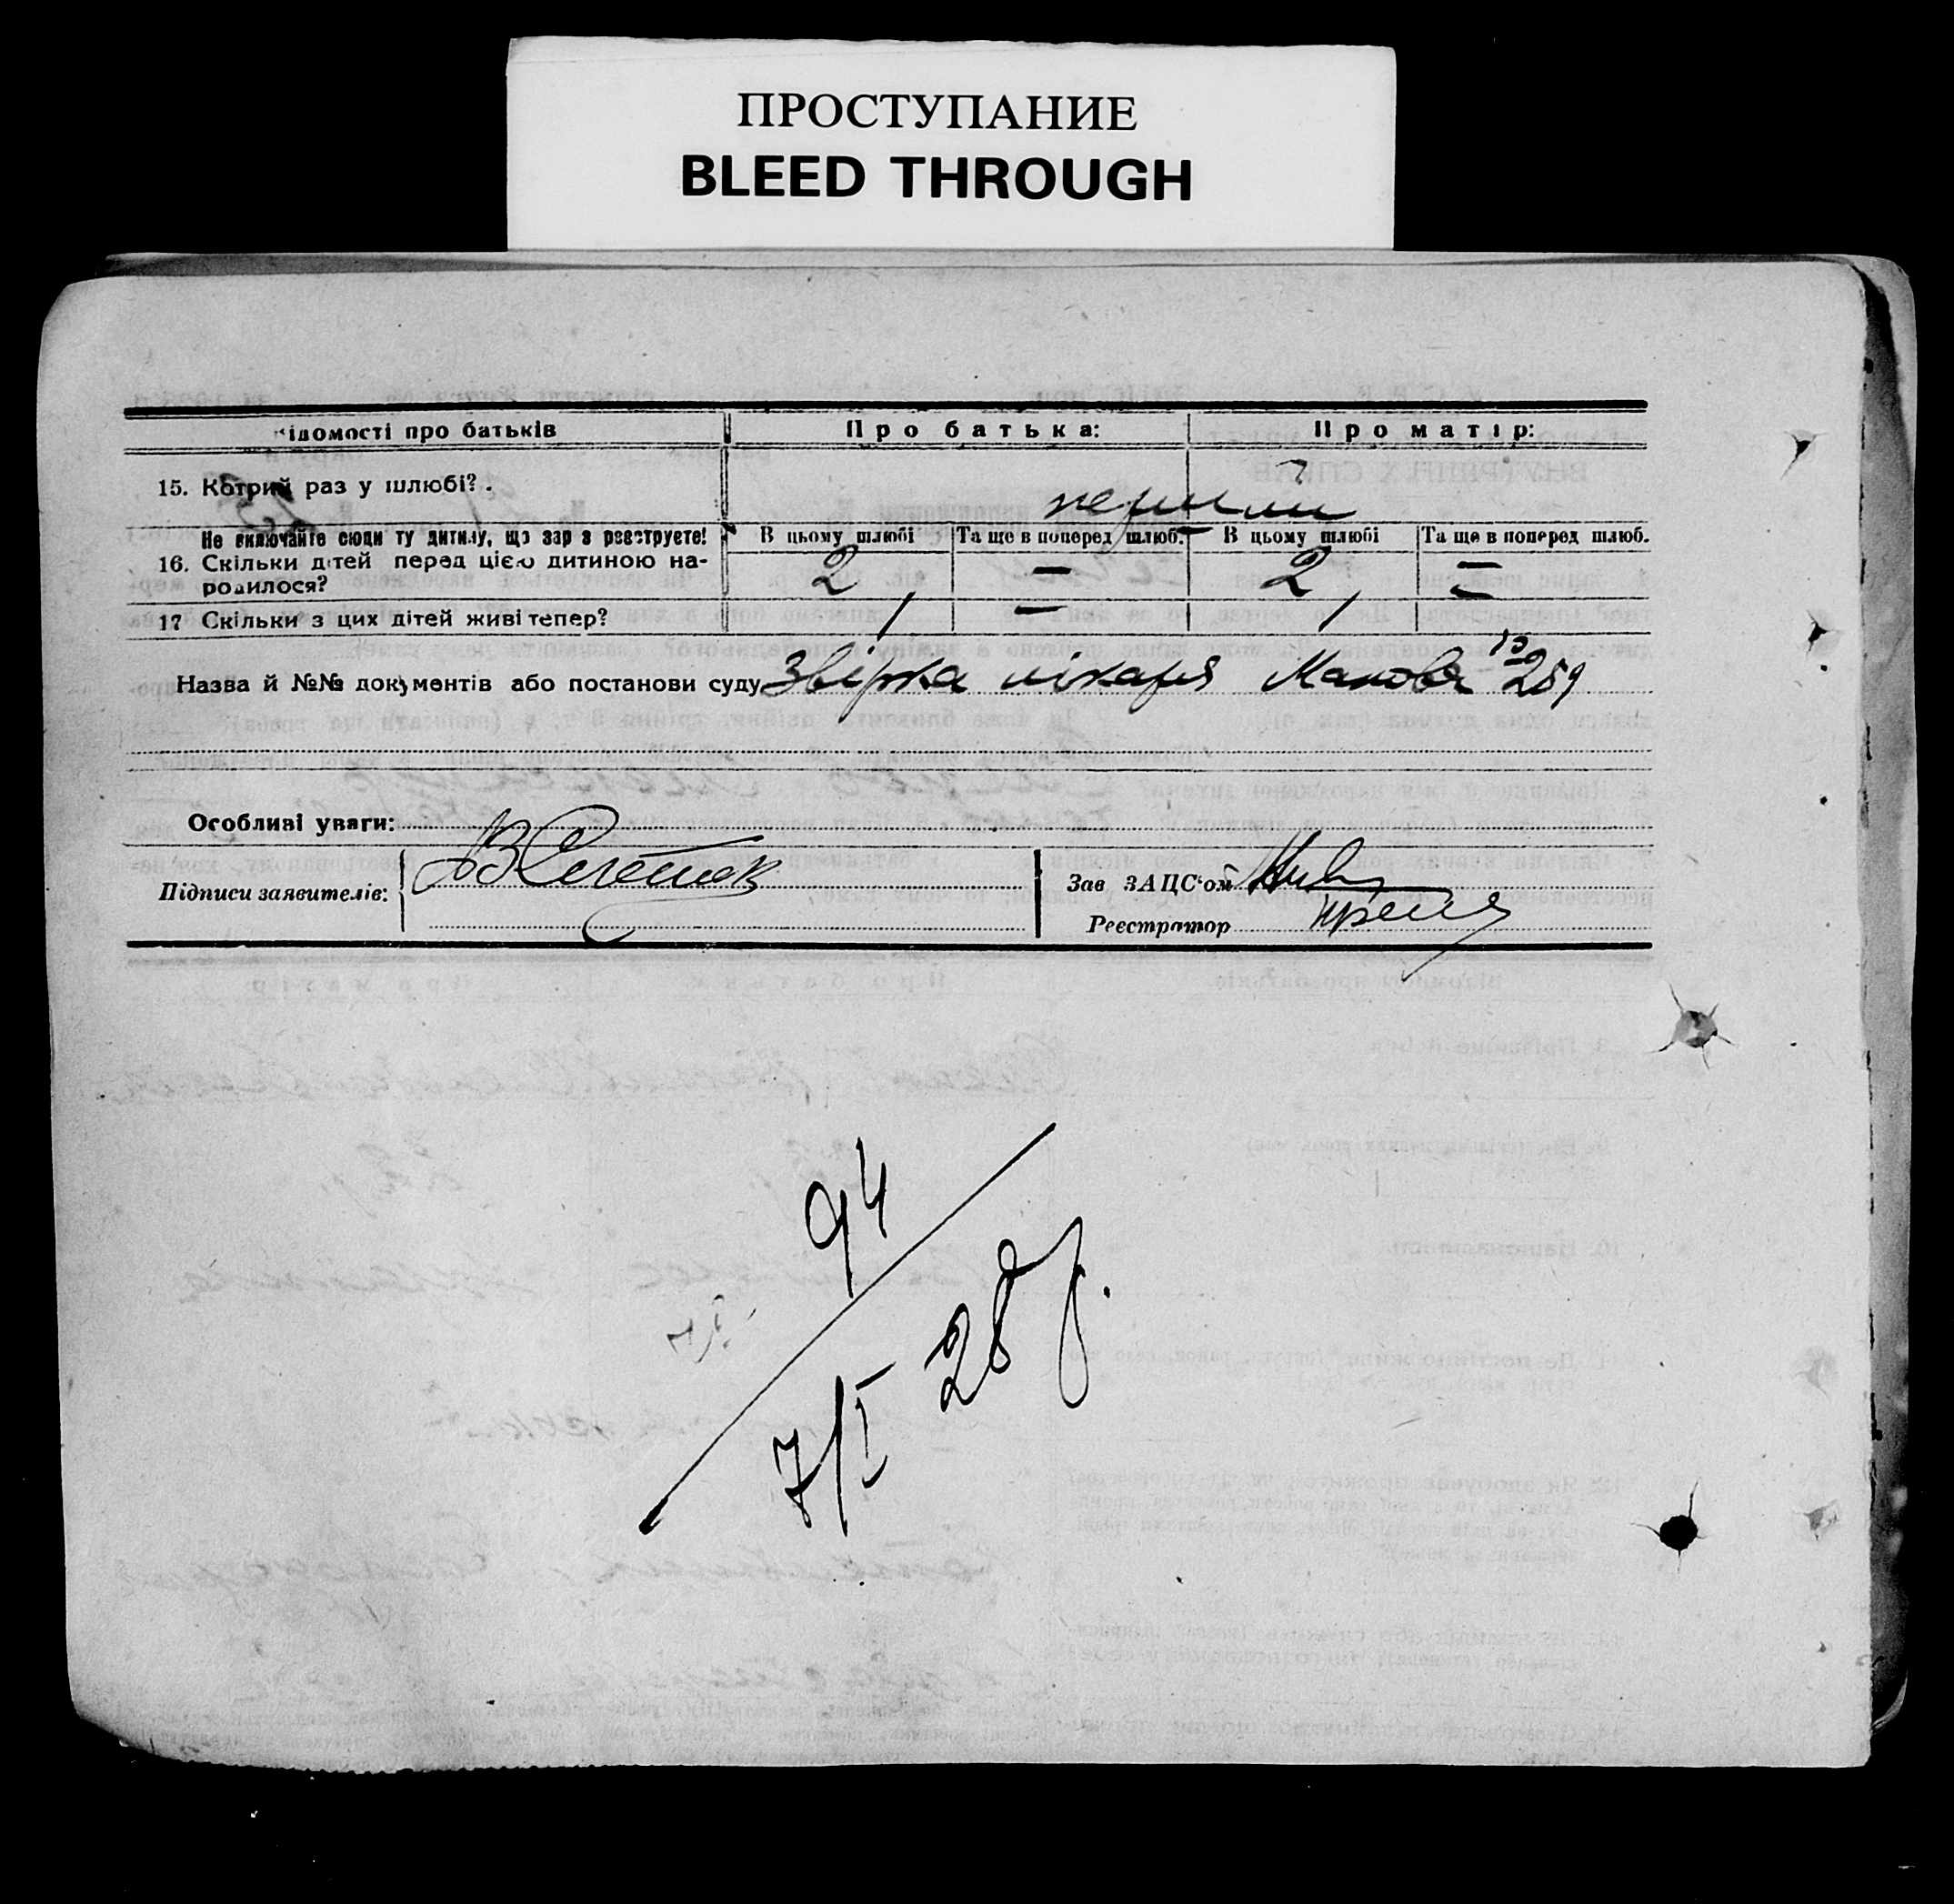 ПРОСТУПАНИЕ
BLEED THROUGH
Відомості про батьків Про батька: Про матір:
15. Котрий раз у шлюбі?. перший
Не включайте сюди ту дитину, що зараз реєструєте! В цьому шлюбі Та ще в поперед шлюб. В цьому шлюбі Та ще в поперед шлюб.
16. Скільки дітей перед цією дитиною на- 2 — 2 —
родилося?
17 Скільки з цих дітей живі тепер? 1 — 1 —
Назва й №№ документів або постанови суду Звірка лікаря 259
Особливі уваги:
Підписи заявителів: Зав ЗАЦС'ом
Реєстратор
94
7/I 28 р.